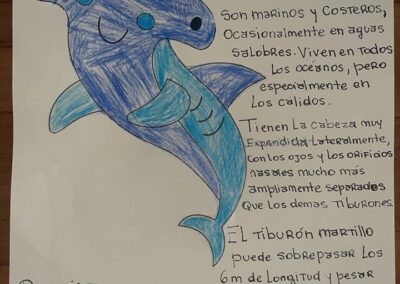 Son marinos y costeros,
Ocasionalmente en aguas
salobres. Viven en todos
los océanos, pero
especialmente en
los calidos.
Tienen la cabeza muy
Expandida lateralmente,
con los ojos y los orificios
nasales mucho más
ampliamente separados
que los demas tiburones.
El tiburón martillo
puede sobrepasar los
6m de longitud y pesar